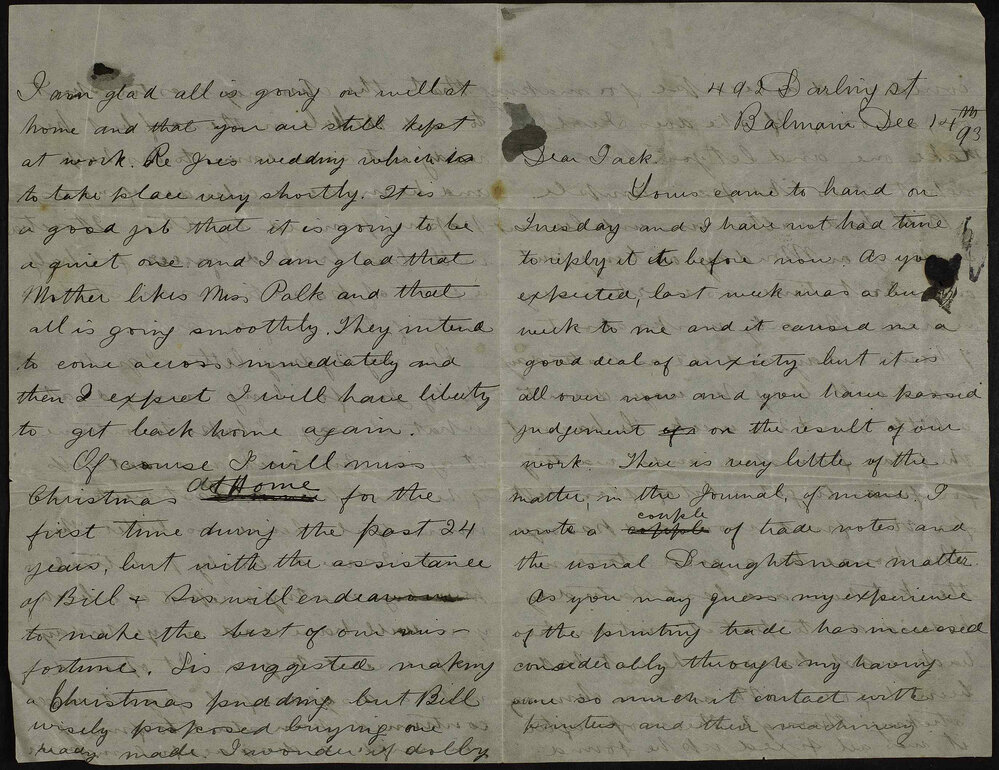 492 Darling st
Balmain Dec 14th 93
Dear Jack.
Yours came to hand on
Tuesday and I have not had time
to reply it to before now. As you
expected, last week was a busy
week to me and it caused me a
good deal of anxiety but it is
all over now and you have passed
judgement on the result of our
work. There is very little of the
matter, in the Journal, of mine. I
wrote a couple of trade notes and
the usual Draughtsman matter.
As you may guess my experience
of the printing trade has increased
considerably through my having
come so much it contact with
printers and their machinery
I am glad all is going on well at
home and that you are still kept
at work Re Joe's wedding which is
to take place very shortly. It is
a good job that it is going to be
a quiet one and I am glad that
Mother likes Miss Palk and that
all is going smoothly. They intend
to come across immediately and
then I expect I will have liberty
to get back home again.
Of course I will miss
Christmas At Home for the
first time during the past 24
years, but with the assistance
of Bill & Sis will endeavour
to make the best of our mis-
fortune. Sis suggested making
a Christmas pudding but Bill
wisely proposed buying one
ready made. I wonder if dolly